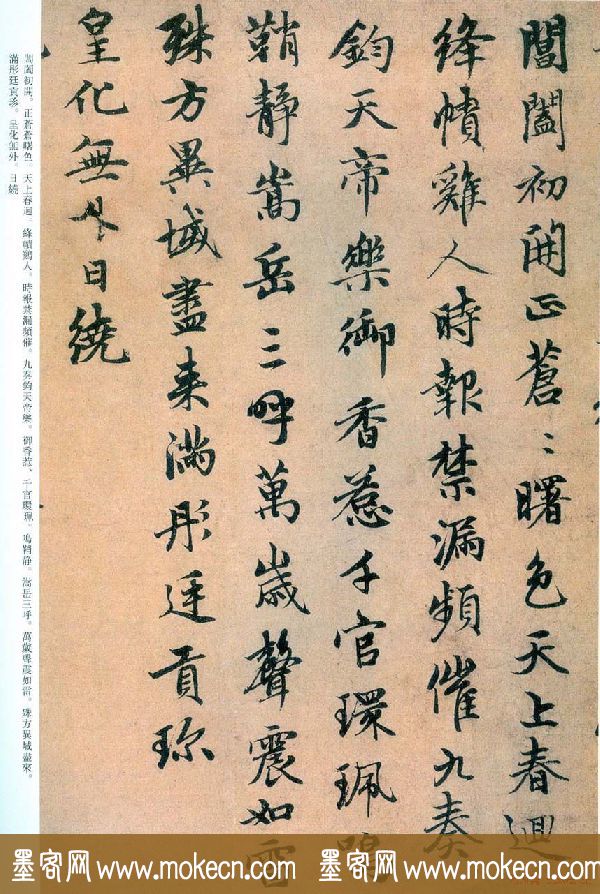 閶闔初開正蒼〻曙色天上春迴
絳幘雞人時報禁漏頻催九奏
鈞天帝樂御香惹千官環珮鳴
鞘靜嵩岳三呼萬歲聲震如雷
殊方異域盡来滿彤廷貢珎
皇化無外日繞
閶闔初開。正蒼蒼曙色。天上春迴。絳幘鷄人。時報禁漏頻催。九奏鈞天帝樂。御香惹、千官環珮。鳴鞘静。嵩岳三呼。萬歲聲震如雷。殊方異域盡來。
滿彤廷貢珍。皇化無外。日繞
墨客网 www.mokecn.com 墨客网 www.mokecn.com